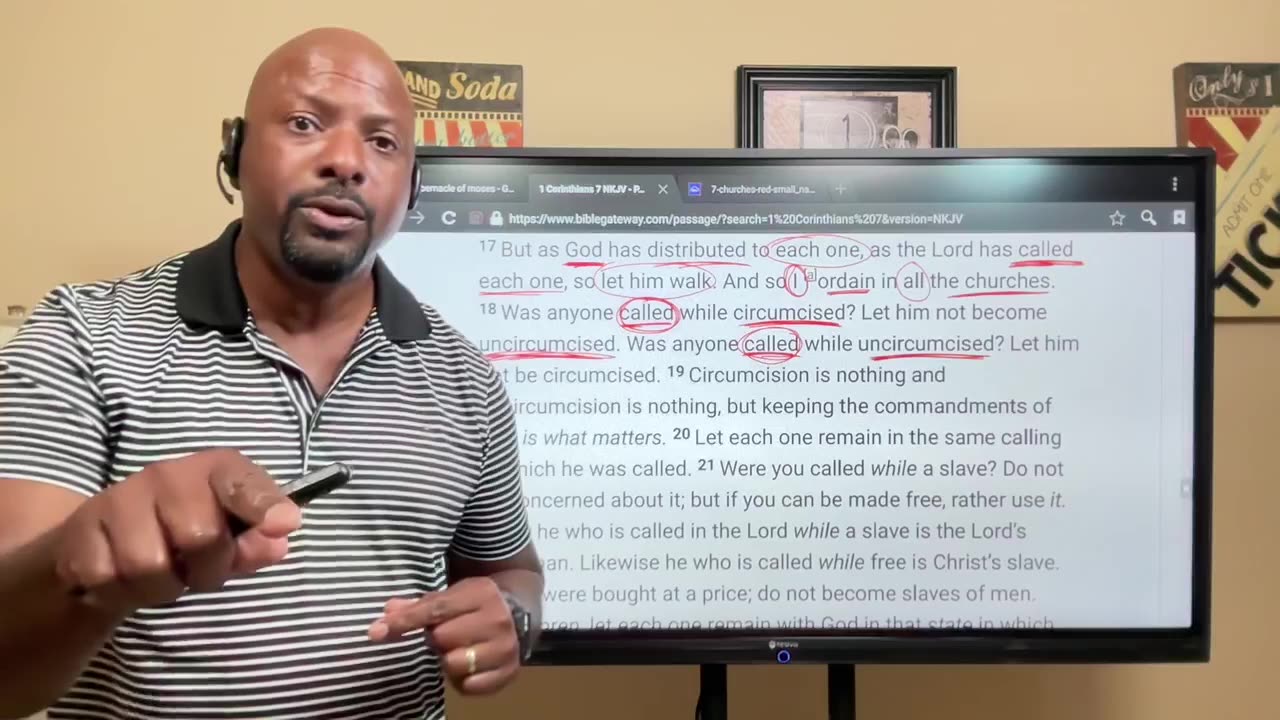 AND Soda
1
Only $1
ADMIT ONE
TICK
bernacle of moses - G...
1 Corinthians 7 NKJV - P...
7-churches-red-small_na...
https://www.biblegateway.com/passage/?search=1%20Corinthians%207&version=NKJV
17 But as God has distributed to each one, as the Lord has called
each one, so let him walk. And so I [a] ordain in all the churches.
18 Was anyone called while circumcised? Let him not become
uncircumcised. Was anyone called while uncircumcised? Let him
t be circumcised. 19 Circumcision is nothing and
ircumcision is nothing, but keeping the commandments of
is what matters. 20 Let each one remain in the same calling
hich he was called. 21 Were you called while a slave? Do not
oncerned about it; but if you can be made free, rather use it.
he who is called in the Lord while a slave is the Lord's
an. Likewise he who is called while free is Christ's slave.
were bought at a price; do not become slaves of men.
hren, let each one remain with God in that state in which